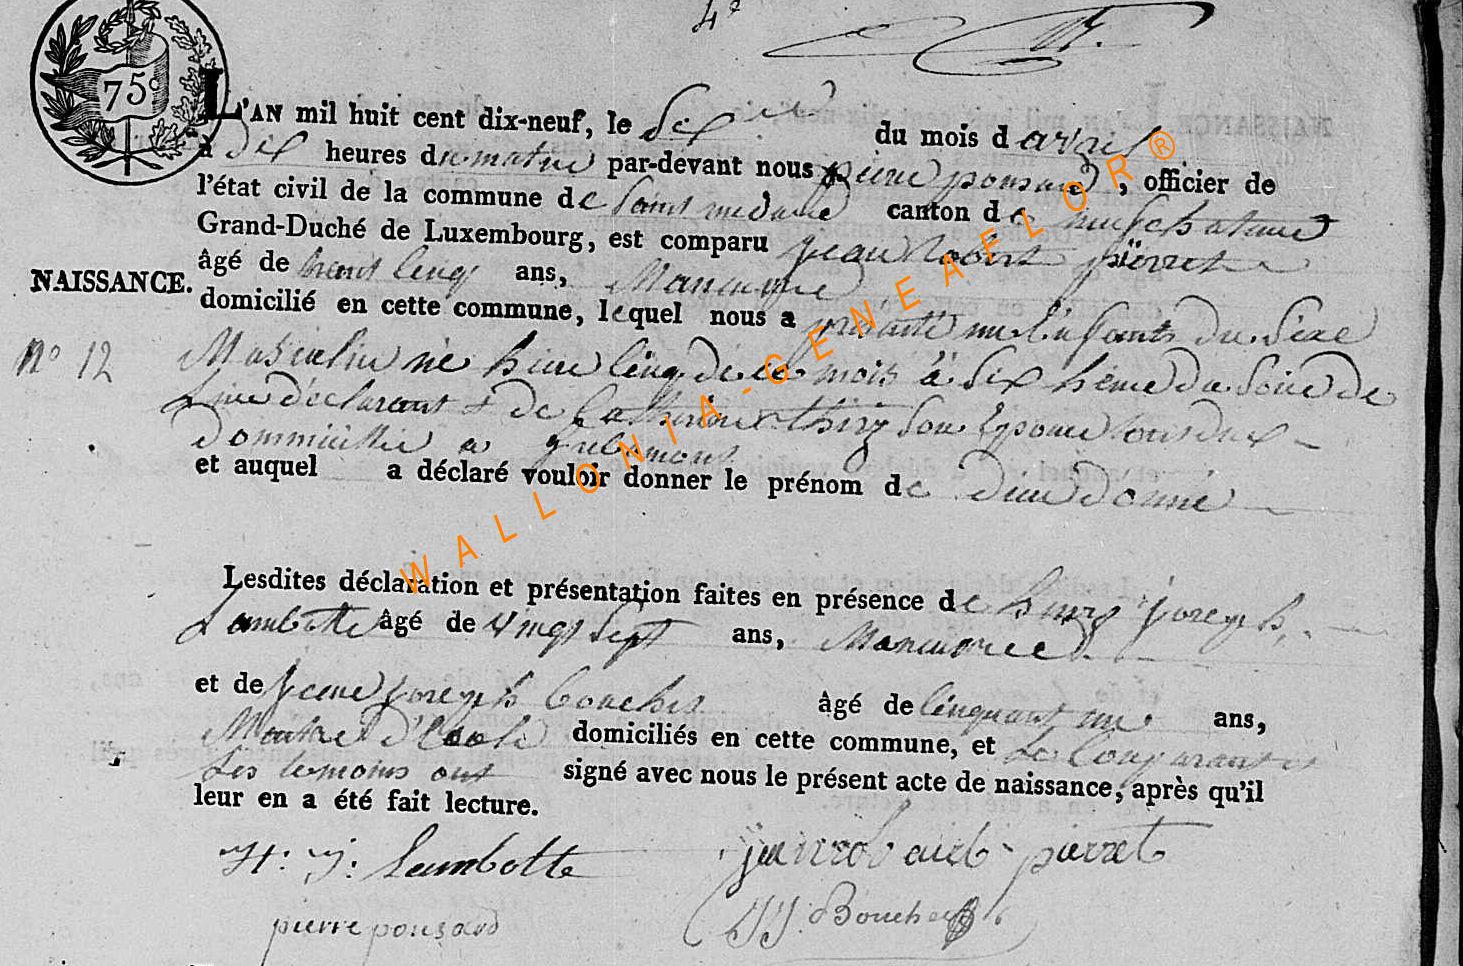 4e
75c
L'AN mil huit cent dix-neuf, le Six du mois d avril
à dix heures du matin par-devant nous pierre ponsard, officier de
l'état civil de la commune de Saint medard canton de neufchateau
Grand-Duché de Luxembourg, est comparu jean robert pierret
âgé de trent cinq ans, Manuvre
NAISSANCE.
domicilié en cette commune, lequel nous a présenté un Enfant du Sexe
No 12
Masculin né hier cinq de ce mois à Six heure du Soire de
Lui déclarant & de Catherine thiry Son Epouse tous deux
Dommicillié a grubemont
et auquel a déclaré vouloir donner le prénom de dieudonné
Lesdites déclaration et présentation faites en présence de henry joseph
Lambotte âgé de vingt Sept ans, Manuvre
et de jean joseph boucher âgé de Cinquant un ans,
Maitre d'Ecole domiciliés en cette commune, et Le Comparant et
Les temoins ont signé avec nous le présent acte de naissance, après qu'il
leur en a été fait lecture.
H: J: Lambotte
jean robert pierret
pierre ponsard
JJ: Boucher
WALLONIA-GENEAFLOR®